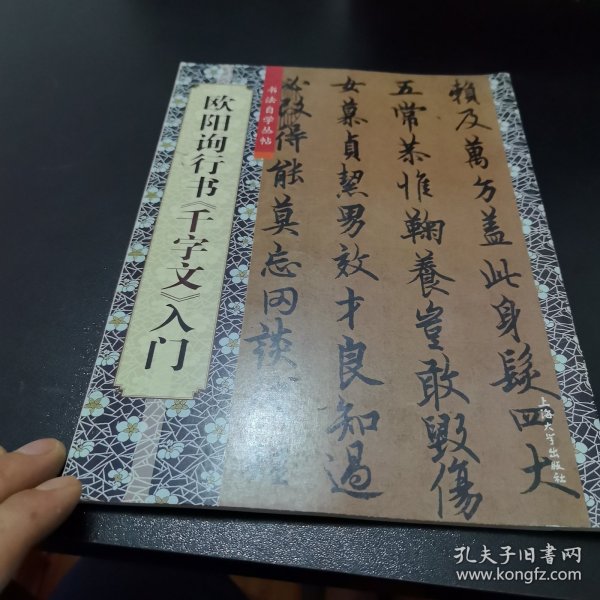 书法自学丛帖
欧阳询行书《千字文》入门
賴及萬方盖此身髮四大
五常恭惟鞠養豈敢毀傷
女慕貞絜男效才良知過
必改得能莫忘罔談
上海大学出版社
孔夫子旧书网
www.kongfz.com